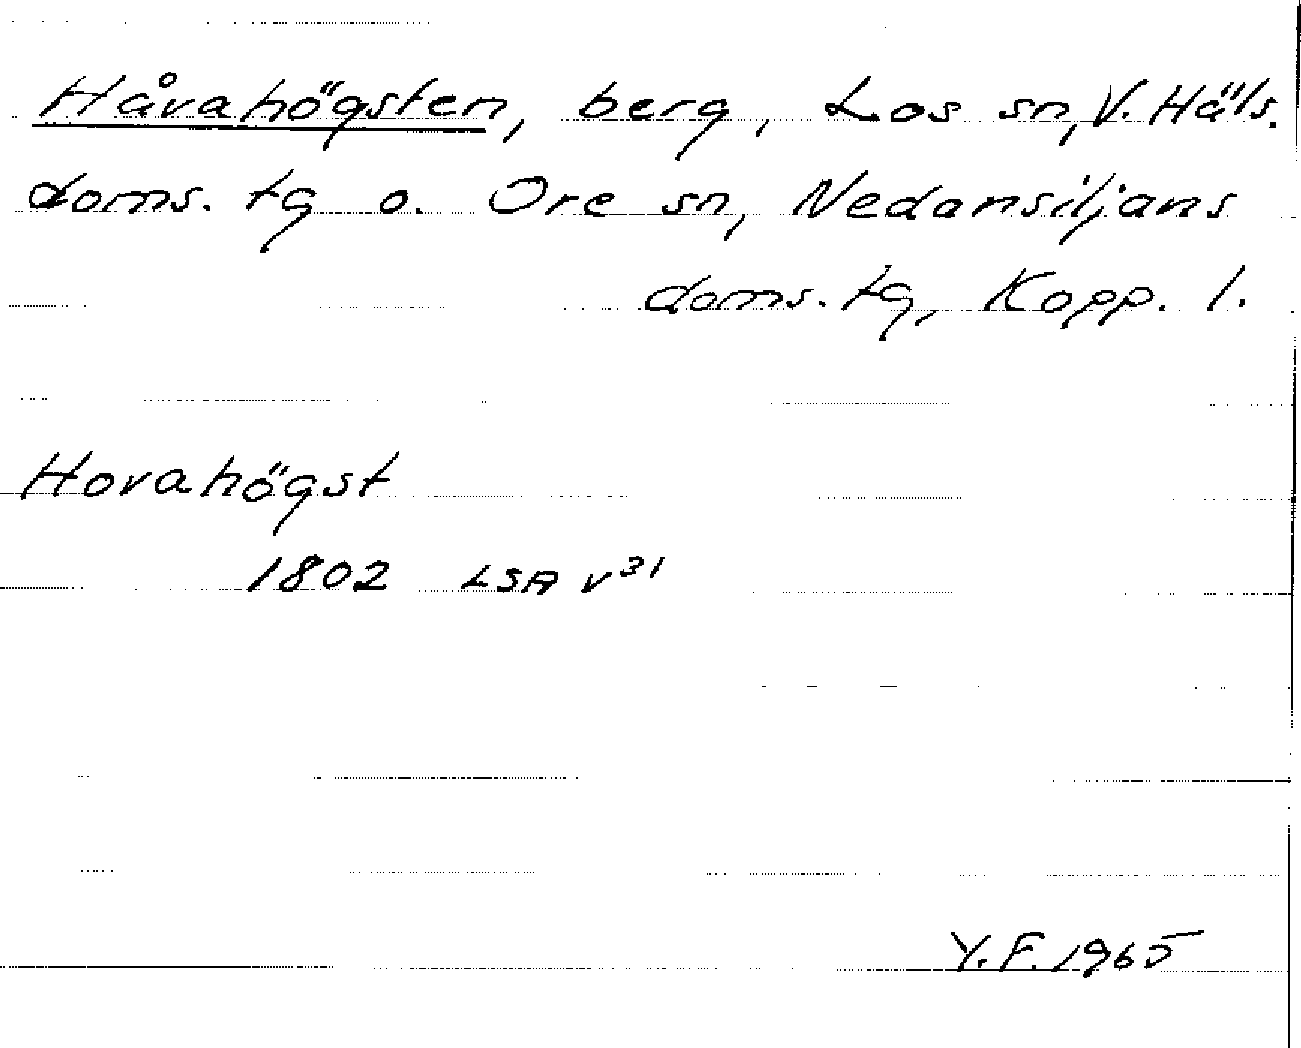 Håvahögsten, berg, Los sn, V. Häls.
doms. tg o. Ore sn, Nedansiljans
doms. tg, Kopp. l.
Hovahögst
1802 LSA V³¹
Y.F. 1965